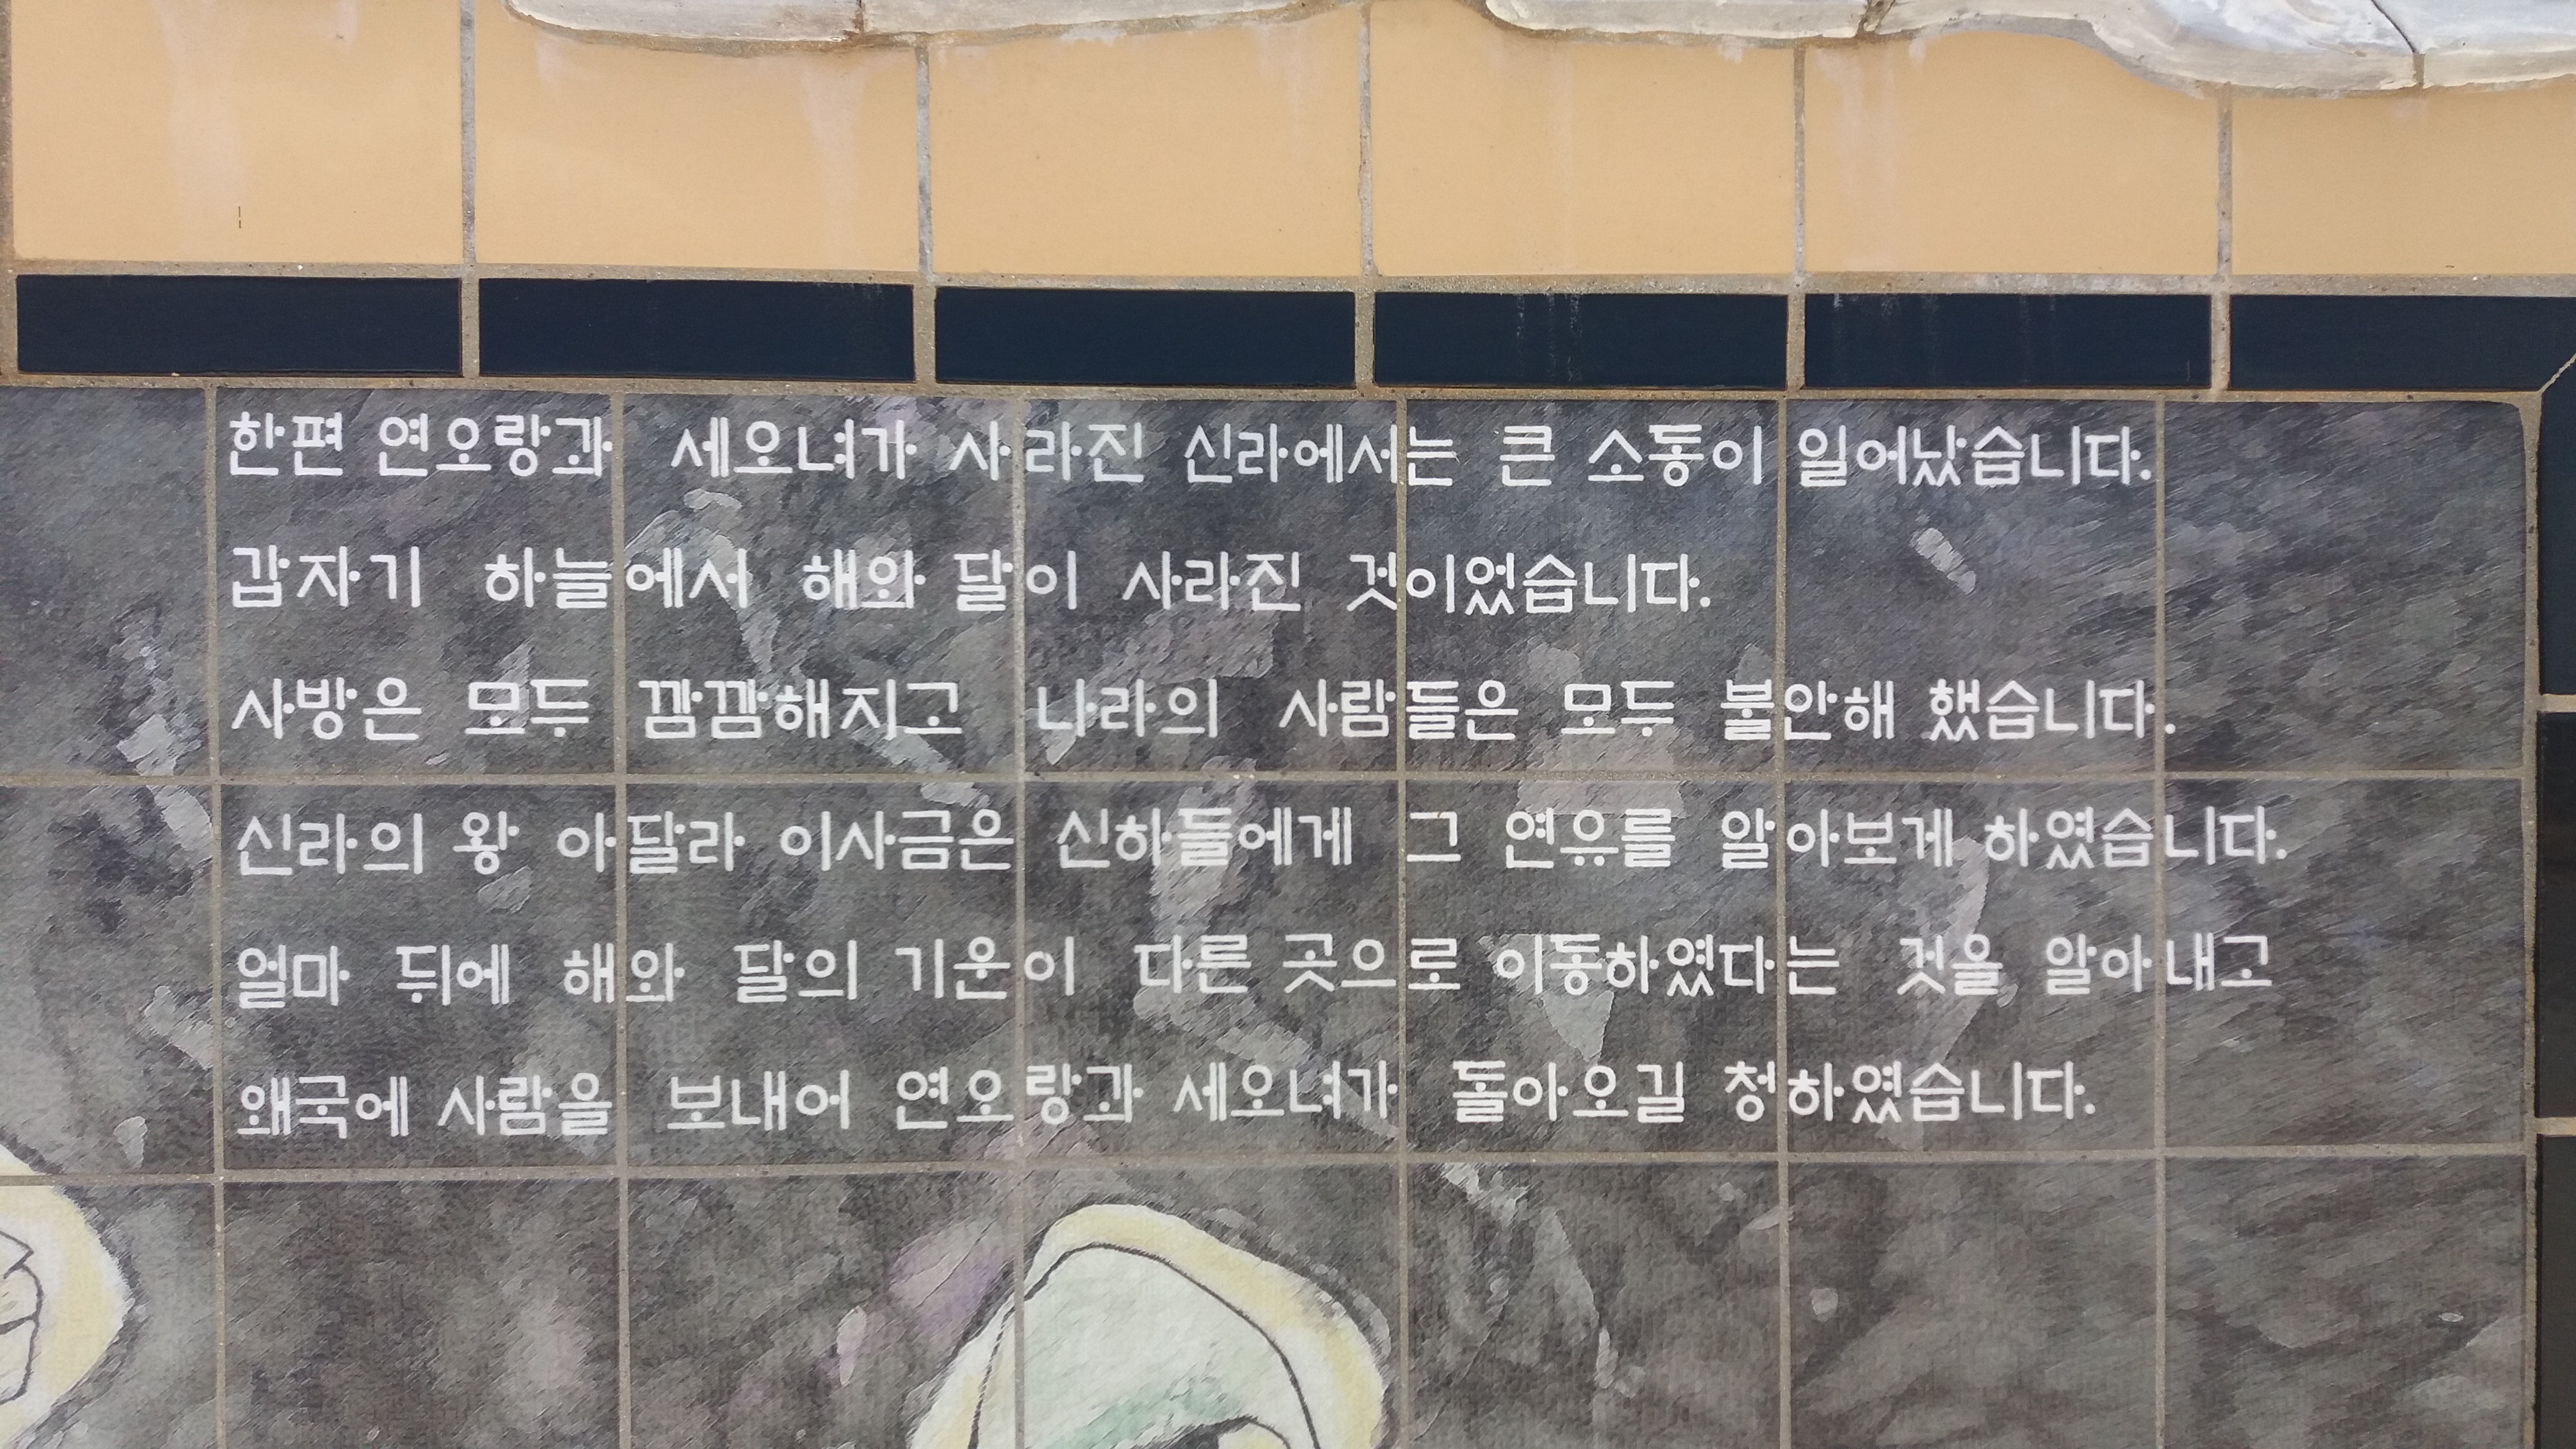 한편 연오랑과 세오녀가 사라진 신라에서는 큰 소동이 일어났습니다.
갑자기 하늘에서 해와 달이 사라진 것이었습니다.
사방은 모두 깜깜해지고 나라의 사람들은 모두 불안해 했습니다.
신라의 왕 아달라 이사금은 신하들에게 그 연유를 알아보게 하였습니다.
얼마 뒤에 해와 달의 기운이 다른 곳으로 이동하였다는 것을 알아내고
왜국에 사람을 보내어 연오랑과 세오녀가 돌아오길 청하였습니다.